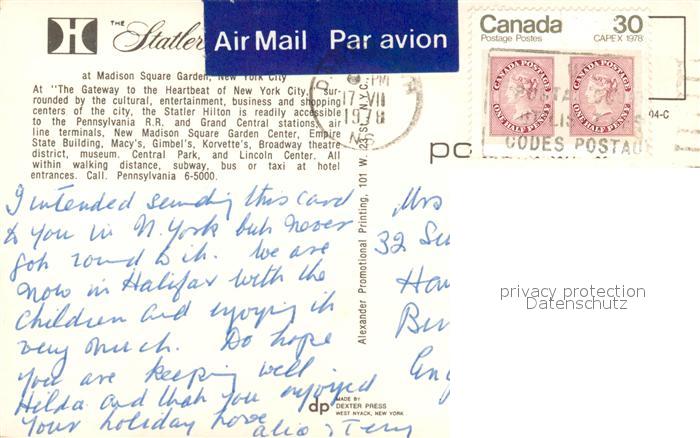 THE
Statler
Air Mail Par avion
Canada 30
Postage Postes CAPEX 1978
CANADA POSTAGE
ONE HALF PENNY
CANADA POSTAGE
ONE HALF PENNY
PM
17 VII
1978
CODES POSTAU
04-C
at Madison Square Garden, New York City
At "The Gateway to the Heartbeat of New York City, sur-
rounded by the cultural, entertainment, business and shopping
centers of the city, the Statler Hilton is readily accessible
to the Pennsylvania R.R. and Grand Central stations, air
line terminals, New Madison Square Garden Center, Empire
State Building, Macy's, Gimbel's, Korvette's, Broadway theatre
district, museum. Central Park, and Lincoln Center. All
within walking distance, subway, bus or taxi at hotel
entrances. Call. Pennsylvania 6-5000.
po
I intended sending this card
to you in N.York but never
got round to it. We are
now in Halifax with the
children and enjoying it
very much. Do hope
you are keeping well
Hilda and that you enjoyed
your holiday
Alexander Promotional Printing, 101 W. 23 St., N.Y.C.
Mrs
32
Eng
privacy protection
Datenschutz
dp
MADE BY
DEXTER PRESS
WEST NYACK, NEW YORK